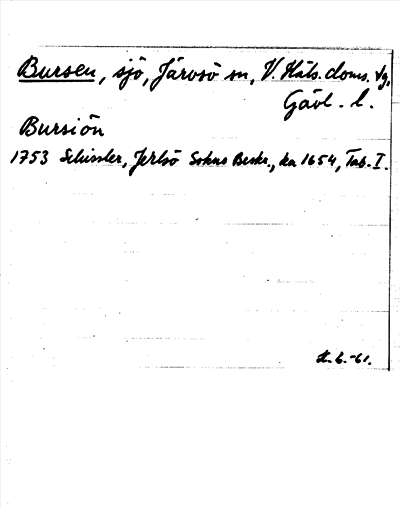 Bursen, sjö, Järvsö sn, V. Häls. doms. tg,
Gävl. l.
Bursiön
1753 Schissler, Jerlsö Sokns Beskr., ka 1654, Tab. I.